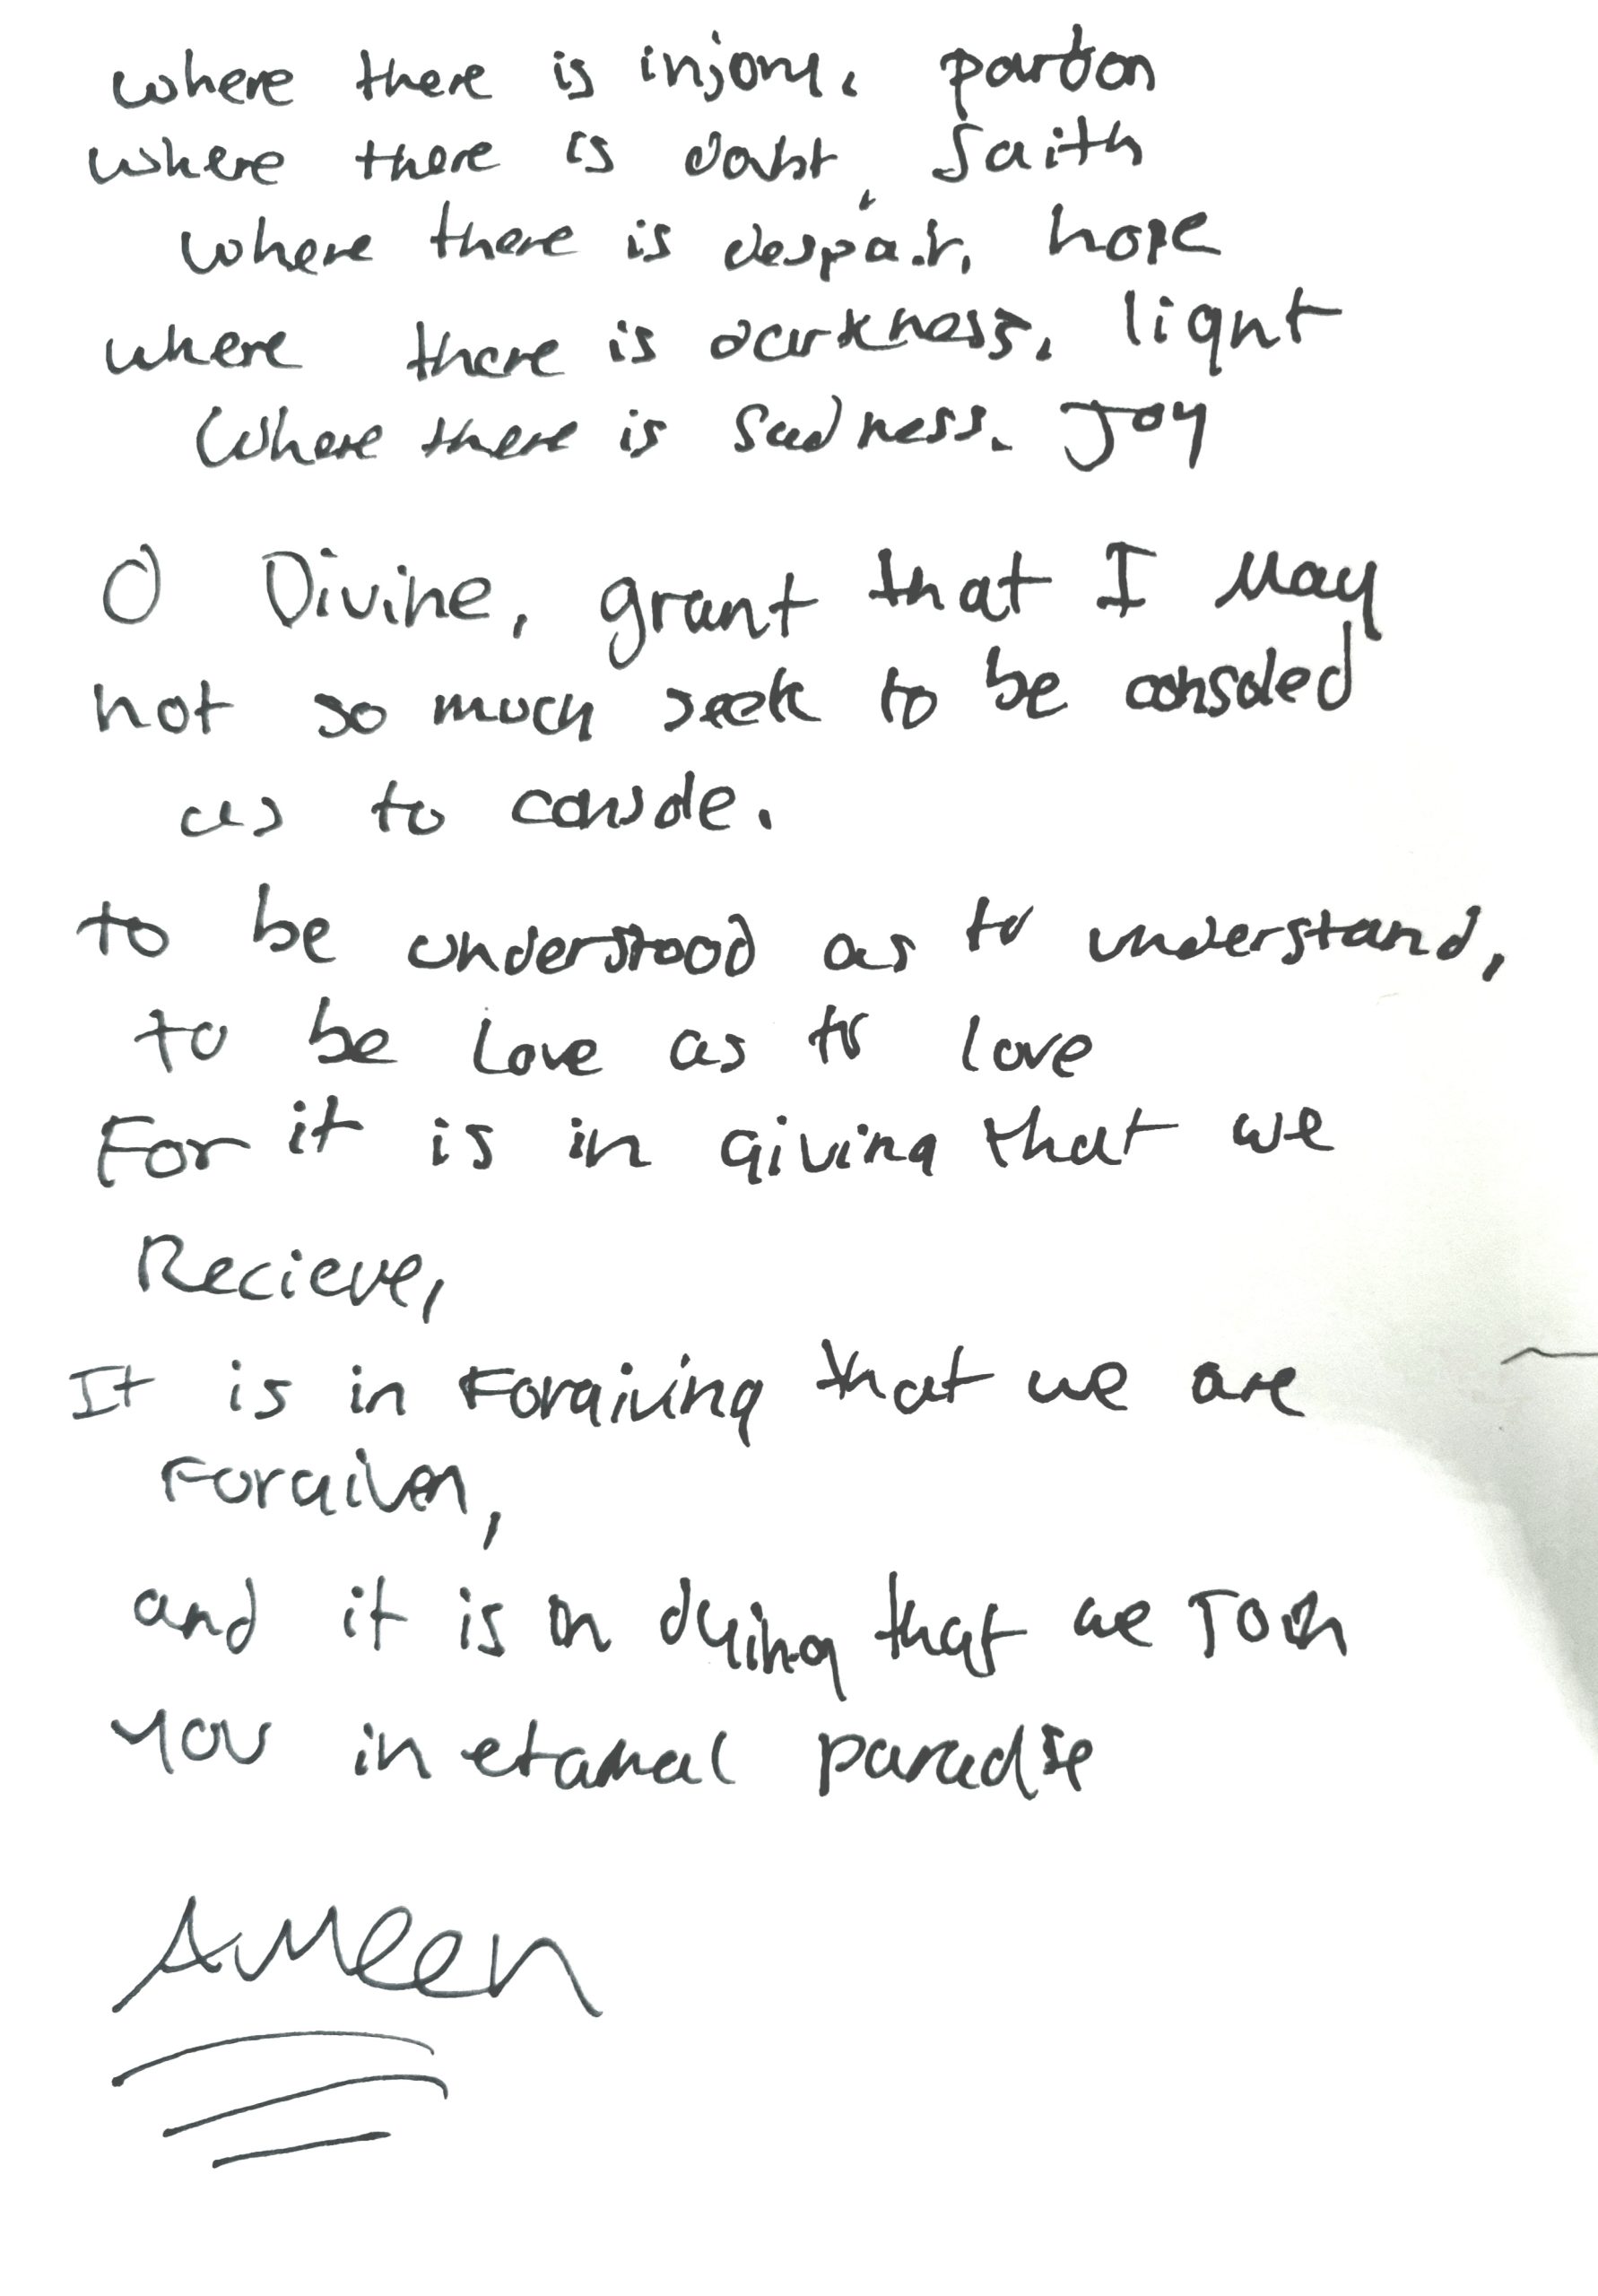 where there is injury, pardon
where there is doubt, faith
where there is despair, hope
where there is darkness, light
Where there is sadness. Joy
O Divine, grant that I may
not so much seek to be consoled
as to console.
to be understood as to understand,
to be love as to love
For it is in giving that we
Recieve,
It is in Forgiving that we are
Forgiven,
and it is in dying that we Join
you in eternal paradise
Ameen